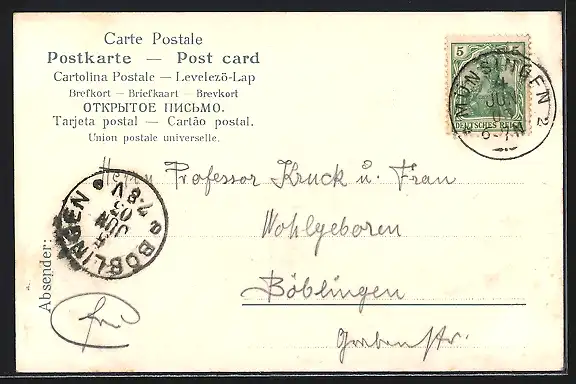 Carte Postale
Postkarte — Post card
Cartolina Postale — Levelező-Lap
Brefkort — Briefkaart — Brevkort
ОТКРЫТОЕ ПИСЬМО.
Tarjeta postal — Cartão postal.
Union postale universelle.
5 5
DEUTSCHES REICH
MÜNSINGEN 2
JUN
Herrn Professor Kruck u. Frau
Wohlgeboren
Böblingen
Grabenstr.
BÖBLINGEN
JUN
05
7-8 V
Absender: